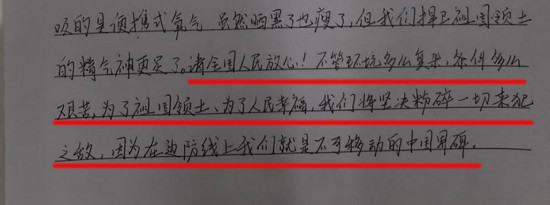 吸的是便携式氧气 虽然晒黑了也瘦了,但我们捍卫祖国领土
的精气神更足了。请全国人民放心!不管环境多么复杂,条件多么
艰苦,为了祖国领土、为了人民幸福,我们将坚决粉碎一切来犯
之敌,因为在边防线上我们就是不可移动的中国界碑.